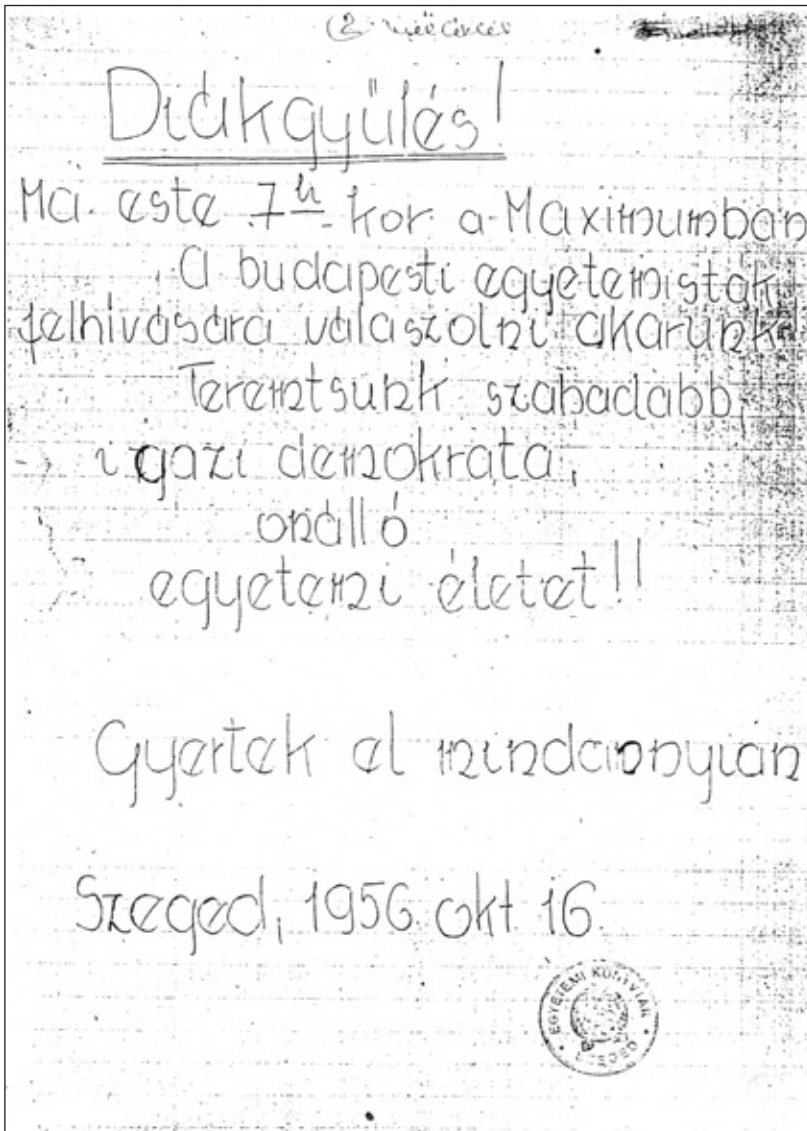 Diákgyűlés!
Ma este 7h kor a Maximumban
A budapesti egyetemisták
felhivására válaszolni akarunk!
Teremtsünk szabadabb,
igazi demokrata,
önálló
egyetemi életet!!
Gyertek el mindannyian
Szeged, 1956. okt 16.
EGYETEMI KÖNYVTÁR
SZEGED